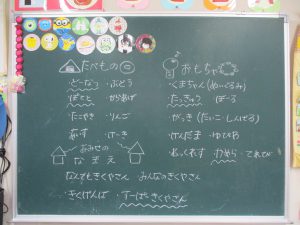 たべもの
おもちゃ
どーなつ ・ぶどう
ぽてと ・からあげ
・たこやき ・りんご
・けーき
・くまちゃん(ぬいぐるみ)
・たっきゅう ・ぼーる
・がっき(たいこ しんでる)
・けんだま ・ゆびわ
てれび
おみせの
なまえ
なんでもきくやさん みんなのきくやさん
・きくげんば ・すーぱーきくやさん